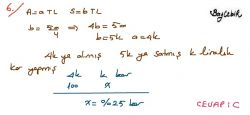 6. A=a TL S=b TL
b = 5a/4 ⇒ 4b = 5a
b=5k a=4k
4k ya almış 5k ya satmış k liralık
kar yapmış 4k k kar
100 x
x = %25 kar
CEVAP C